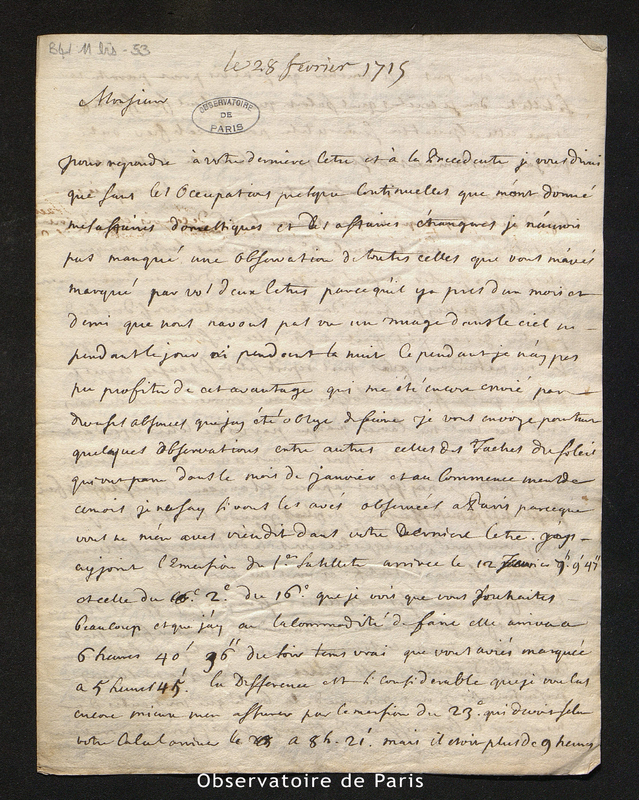 B4/ 11 bis - 53
le 28 fevrier 1715
Monsieur
OBSERVATOIRE
DE
PARIS
pour repondre à votre derniere letre et à la precedente je vous dirai
que sans les occupations presque continuelles que m'ont donné
mes affaires domestiques et des affaires je n'aurois
pas manqué une observation de toutes celles que vous m'avés
marqué par vos deux letres parcequ'il y a pres d'un mois et
demi que nous n'avons pas vu un nuage dans le ciel ni
pendant le jour ni pendant la nuit Cependant je n'ay pas
pu profiter de cet avantage qui m'a été encore envié par
diverses absences que j'ay été oblige de faire je vous envoye pourtant
quelques observations entre autres celles des Taches du soleil
qui ont paru dans le mois de janvier et au commencement de
ce mois je ne say si vous les avés observées a Paris parceque
vous ne m'en aves rien dit dans votre derniere letre. j'ay
ajoint l'Emersion du 1er Satellite arrivée le 12 9h 9' 47"
et celle du 2e du 16e que je vois que vous souhaites
beaucoup et que j'ay eu la commodité de faire elle arriva a
6 heures 40' 36" du soir tems vrai que vous aviés marquée
a 5 heures 45'. la Difference est si considerable que je voulus
encore mieux m'en assurer par l'emersion du 23e qui devoit selon
votre Calcul arriver le a 8h. 21'. mais il etoit plus de 9 heures
Observatoire de Paris